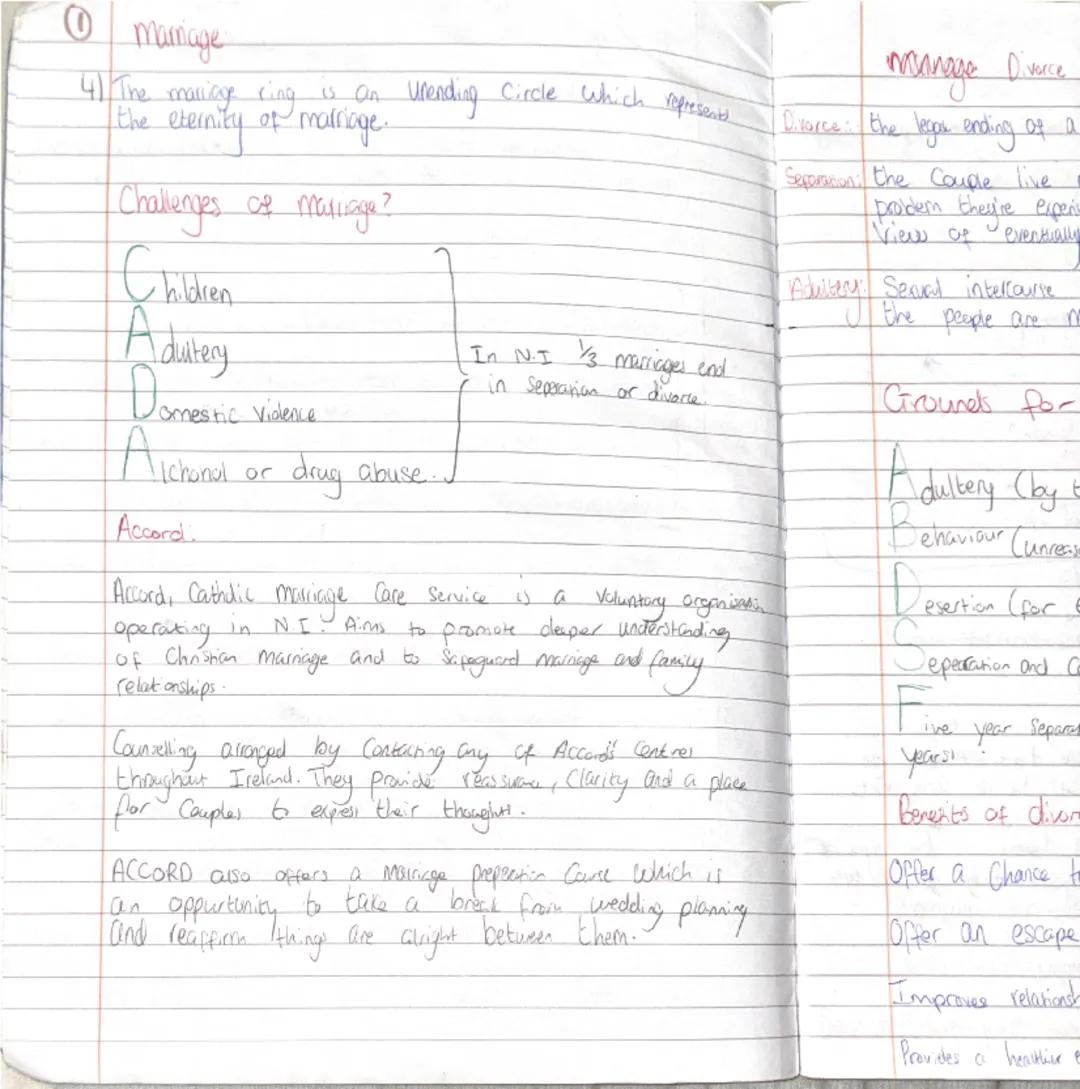 ①
Marriage
4) The marriage ring is an Unending Circle which represents
the eternity of marriage.
Challenges of Marriage?
Children
Adultery
Domestic Violence
Alchohol or drug abuse.
In N.I 1/3 marriages end
in Seperation or divorce.
Accord.
Accord, Catholic Marriage Care Service is a Voluntary organisation
operating in N.I. Aims to promote deeper understanding
of Christian Marriage and to Safeguard marriage and family
relationships.
Counselling arranged by Contacting any of Accord's Centres
throughout Ireland. They provide reassurance, Clarity and a place
for Couples to express their thoughts.
ACCORD also offers a Marriage preperation Course which is
an oppurtunity to take a break from wedding planning
and reaffirm things are alright between them.
Divorce
Divorce: the legal ending of a
Separation: the Couple live
problem they're experi
View of eventually
Adultery: Sexual intercourse
the people are m
Grounds for
Adultery (by t
Behaviour (unreas
Desertion (for
Seperation and Co
Five year Separat
years)
Benefits of divor
Offer a Chance t
Offer an escape
Improves relationsh
Provides a healthier e